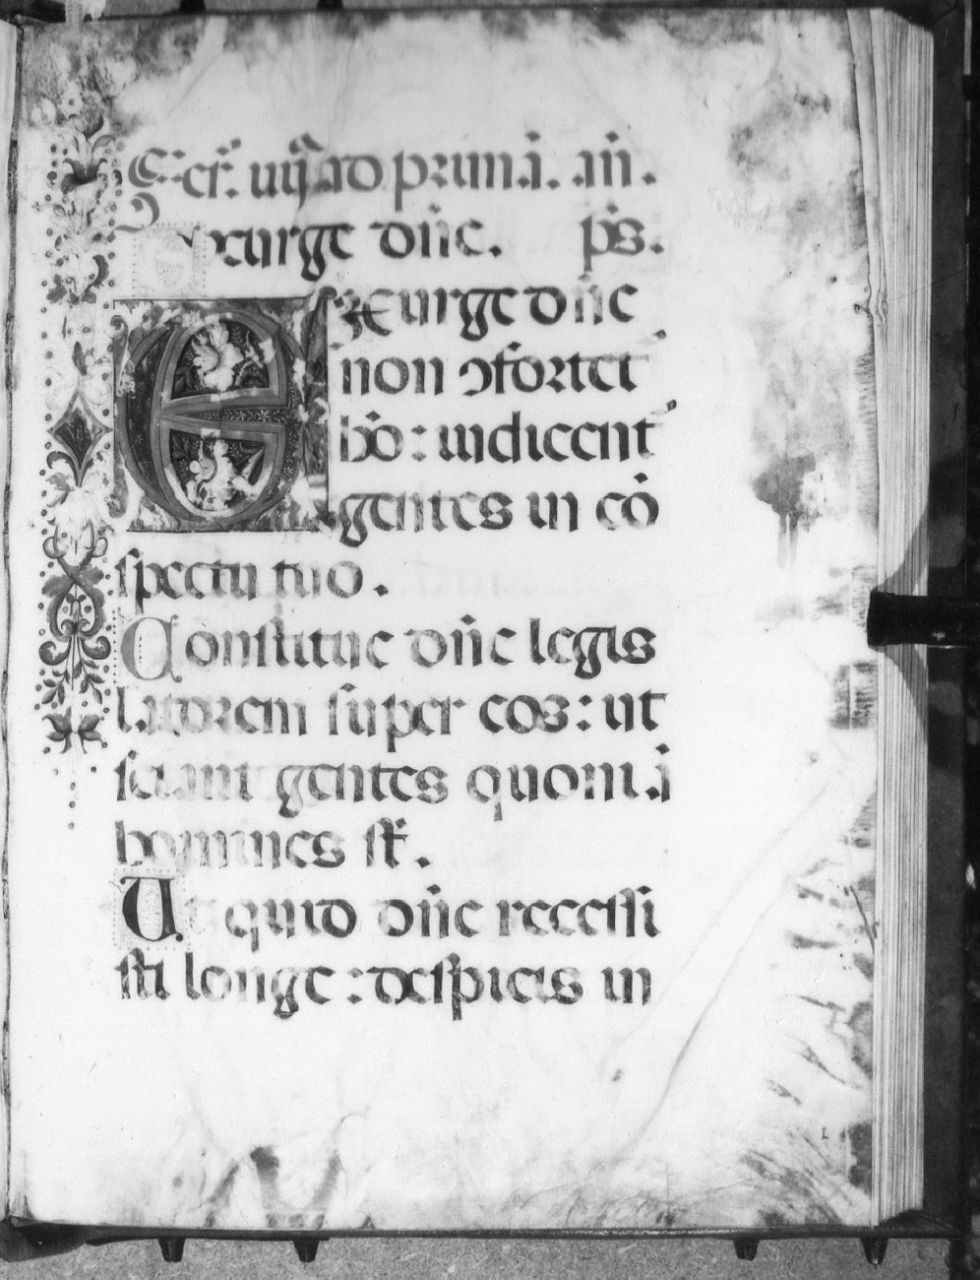 Scr̃. uıȷ̃. ad primã. añ.
Exurge dñe. p̃s.
Exurge dñe
non ɔfortet᷑
hõ: iudicent᷑
gentes in cõ
spectu tuo.
Constitue dñe legis
latorem super eos: ut
sciant gentes quoniã
homines st̃.
Ut quid dñe recessi
sti longe: despicis in